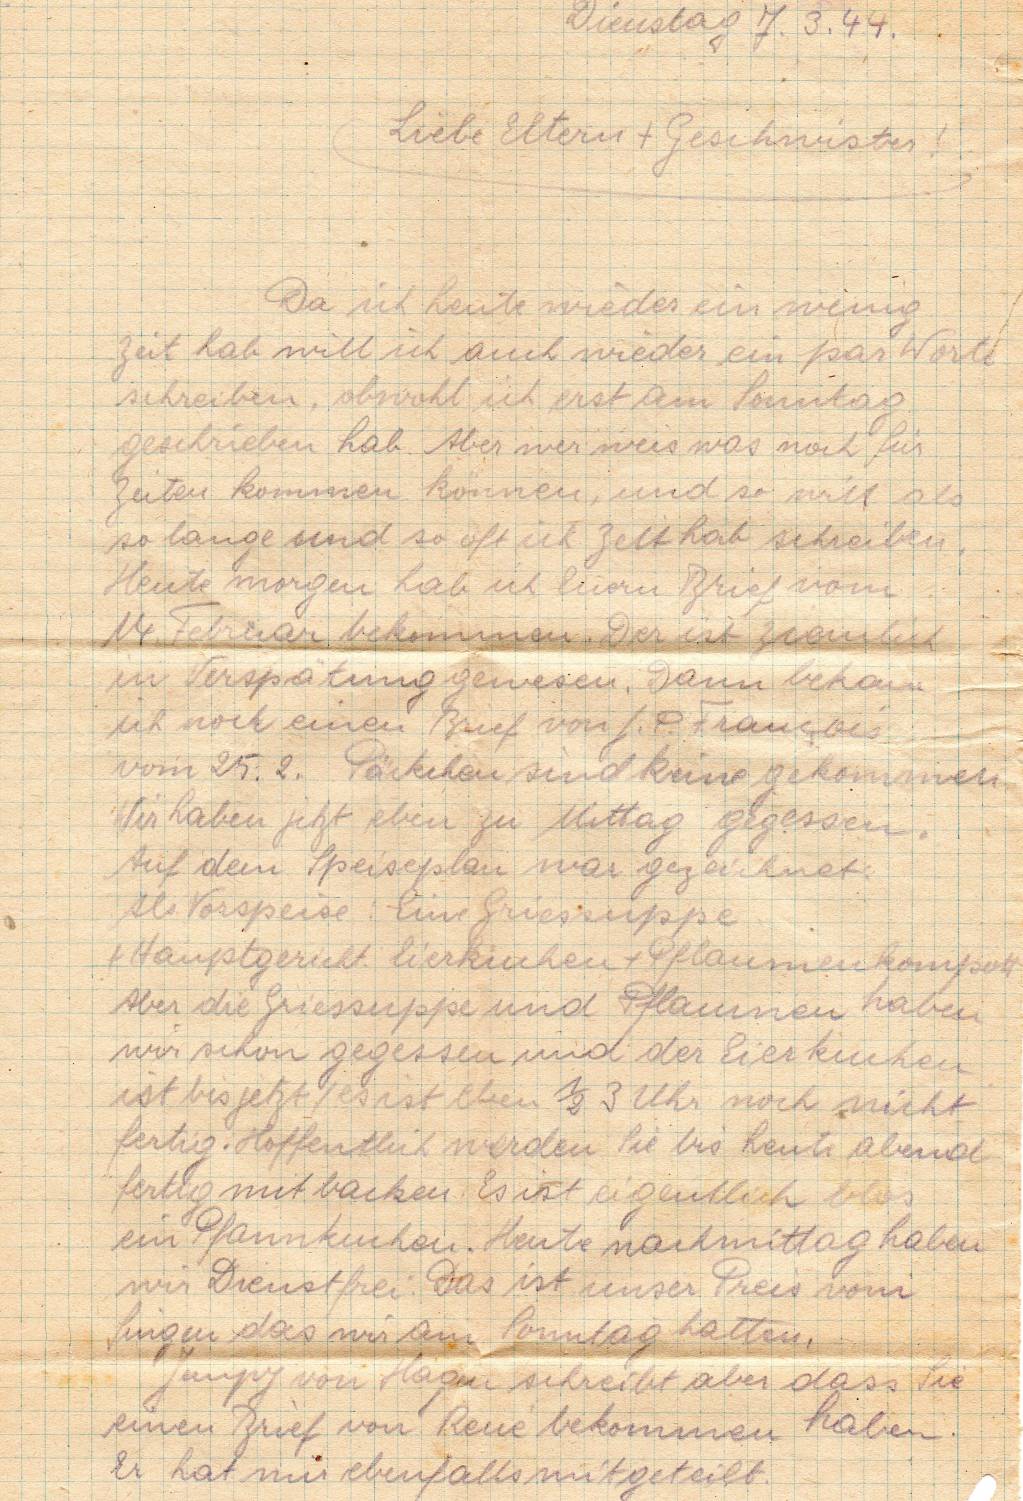 Dienstag 7. 3. 44.
Liebe Eltern + Geschwister!
Da ich heute wieder ein wenig
Zeit hab will ich auch wieder ein par Worte
schreiben, obwohl ich erst am Sonntag
geschrieben hab. Aber wer weis was noch für
Zeiten kommen können, und so will als
so lange und so oft ich Zeit hab schreiben.
Heute morgen hab ich Euern Brief vom
14. Februar bekommen. Der ist ziemlich
in Verspätung gewesen. Dann bekam
ich noch einen Brief von J. P. François
vom 25. 2. Päckchen sind keine gekommen
Wir haben jetzt eben zu Mittag gegessen.
Auf dem Speiseplan war gezeichnet:
Als Vorspeise: Eine Griessuppe
+ Hauptgericht. Eierkuchen + Pflaumenkompott
Aber die Griessuppe und Pflaumen haben
wir schon gegessen und der Eierkuchen
ist bis jetzt / es ist eben 1/2 3 Uhr noch nicht
fertig. Hoffentlich werden Sie bis heute abend
fertig mit backen. Es ist eigentlich blos
ein Pfannkuchen. Heute nachmittag haben
wir Dienstfrei. Das ist unser Preis vom
Singen das wir am Sonntag hatten.
von Hagen schreibt aber dass Sie
einen Brief von René bekommen haben.
Er hat mir ebenfalls mitgeteilt.